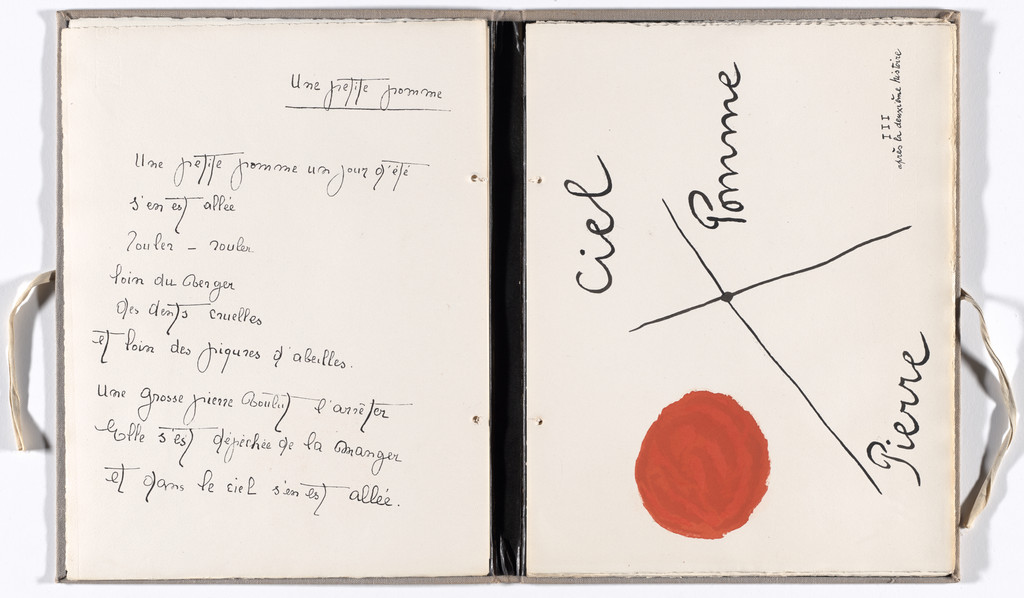 Une petite pomme
Une petite pomme un jour d'été
s'en est allée
Rouler - rouler
loin du Berger
des dents cruelles
et loin des piqures d'abeilles.
Une grosse pierre Voulut l'arrêter
Elle s'est dépêchée de la manger
et dans le ciel s'en est allée.
III
après la deuxième histoire
Ciel
Pomme
Pierre